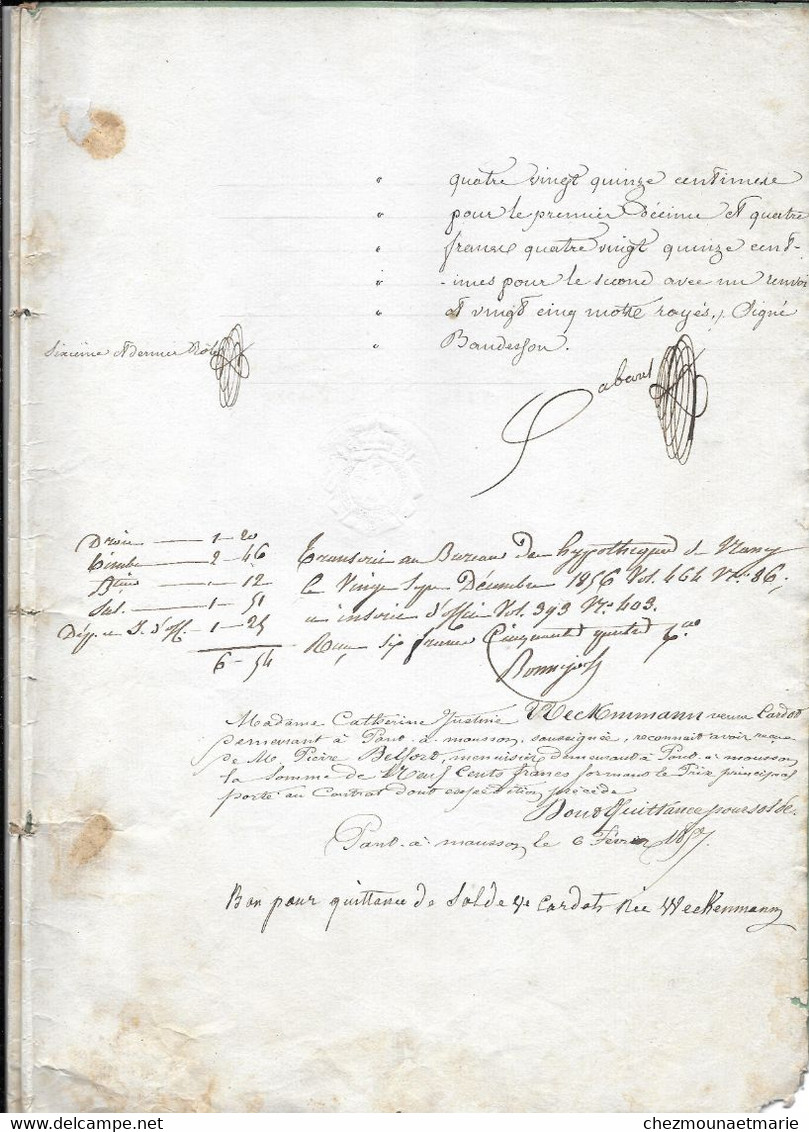 quatre vingt quinze centimes
pour le premier décime et quatre
francs quatre vingt quinze cent-
-imes pour le second avec un renvoi
et vingt cinq mots rayés. Signé
Baudesson.
Sixième et dernier Rôle
Droits — 1 - 20
Timbre — 2 - 46
— " - 12
Sal. — 1 - 51
Dép. et I. d'off. — 1 - 25
6 - 54
Transcrit au Bureau des hypothèques de Nancy
le Vingt Sept Décembre 1856 Vol. 464 No. 86,
et inscrit d'office Vol. 393 No. 403.
Reçu six francs Cinquante quatre
Madame Catherine Justine Weckenmann veuve Cardot
Demeurant à Pont-à-mousson, soussignée, reconnait avoir reçu
de M. Pierre Belfort, menuisier, demeurant à Pont-à-mousson
la Somme de Neuf Cents francs formant le Prix principal
porté au Contrat dont expédition précède
Dont Quittance pour solde.
Pont-à-mousson, le 6 Février 1857.
Bon pour quittance de Solde Ve Cardot Née Weckenmann
chezmounaetmarie